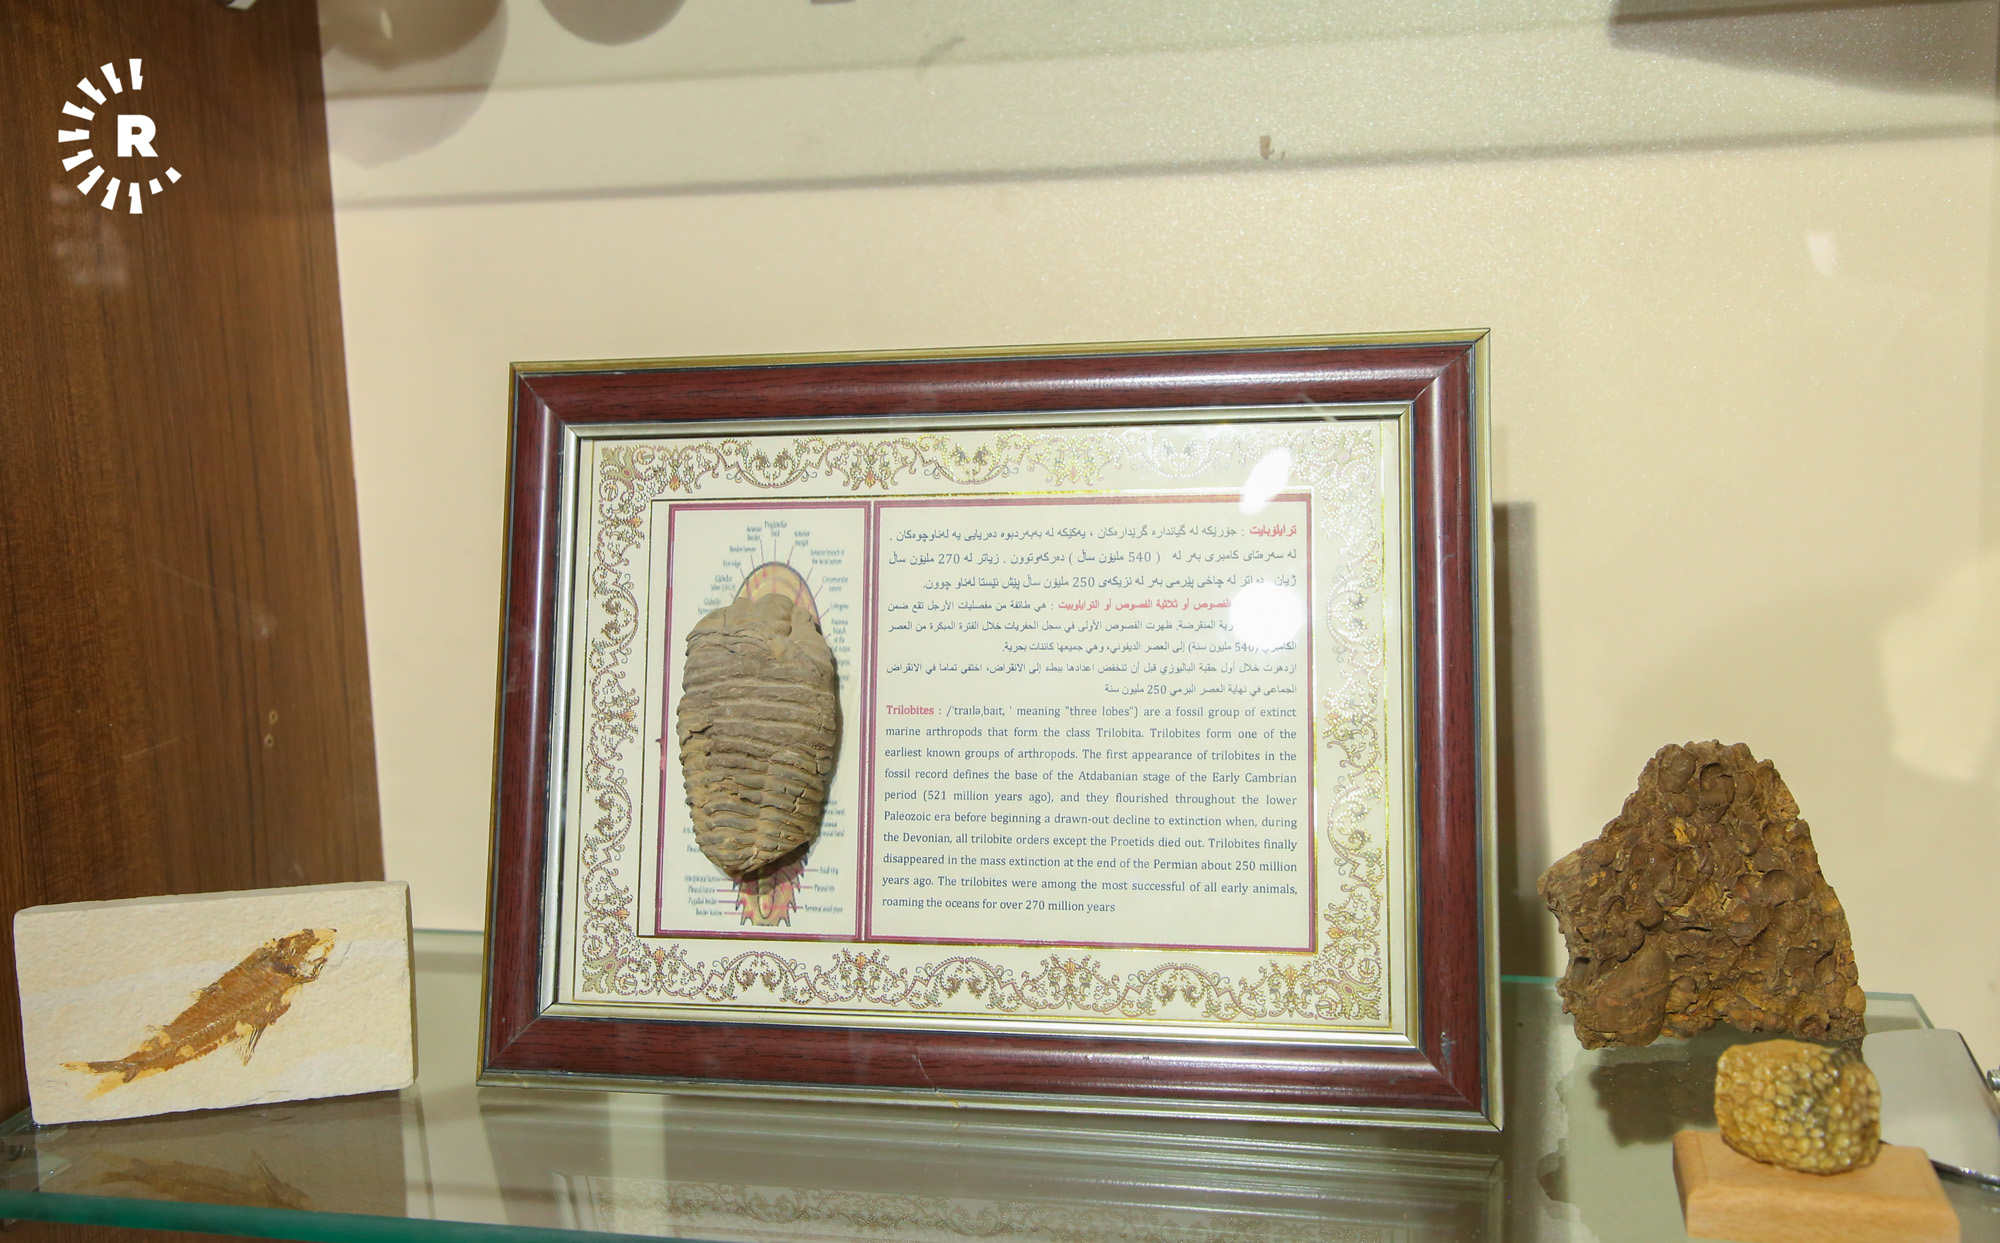 R
Preglabellar
field
Anterior
margin
ترایلۆبایت : جۆرێکە لە گیاندارە گرێدارەکان ، یەکێکە لە بەبەردبوە دەریایی یە لەناوچوەکان .
لە سەرەتای کامبری بەر لە ( 540 ملیۆن ساڵ ) دەرکەوتوون . زیاتر لە 270 ملیۆن ساڵ
ژیان لە چاخی پێرمی بەر لە نزیکەی 250 ملیۆن ساڵ پێش ئێستا لەناو چوون.
الفصوص أو ثلاثية الفصوص أو الترايلوبيت : هي طائفة من مفصليات الأرجل تقع ضمن
المنقرضة. ظهرت الفصوص الأولى في سجل الحفريات خلال الفترة المبكرة من العصر
الكامبري (540 مليون سنة) إلى العصر الديفوني، وهي جميعها كائنات بحرية.
ازدهرت خلال أول حقبة الباليوزي قبل أن تنخفض اعدادها ببطء إلى الانقراض، اختفى تماما في الانقراض
الجماعى في نهاية العصر البرمي 250 مليون سنة
Trilobites : /ˈtraɪləˌbaɪt, ' meaning "three lobes") are a fossil group of extinct
marine arthropods that form the class Trilobita. Trilobites form one of the
earliest known groups of arthropods. The first appearance of trilobites in the
fossil record defines the base of the Atdabanian stage of the Early Cambrian
period (521 million years ago), and they flourished throughout the lower
Paleozoic era before beginning a drawn-out decline to extinction when, during
the Devonian, all trilobite orders except the Proetids died out. Trilobites finally
disappeared in the mass extinction at the end of the Permian about 250 million
years ago. The trilobites were among the most successful of all early animals,
roaming the oceans for over 270 million years